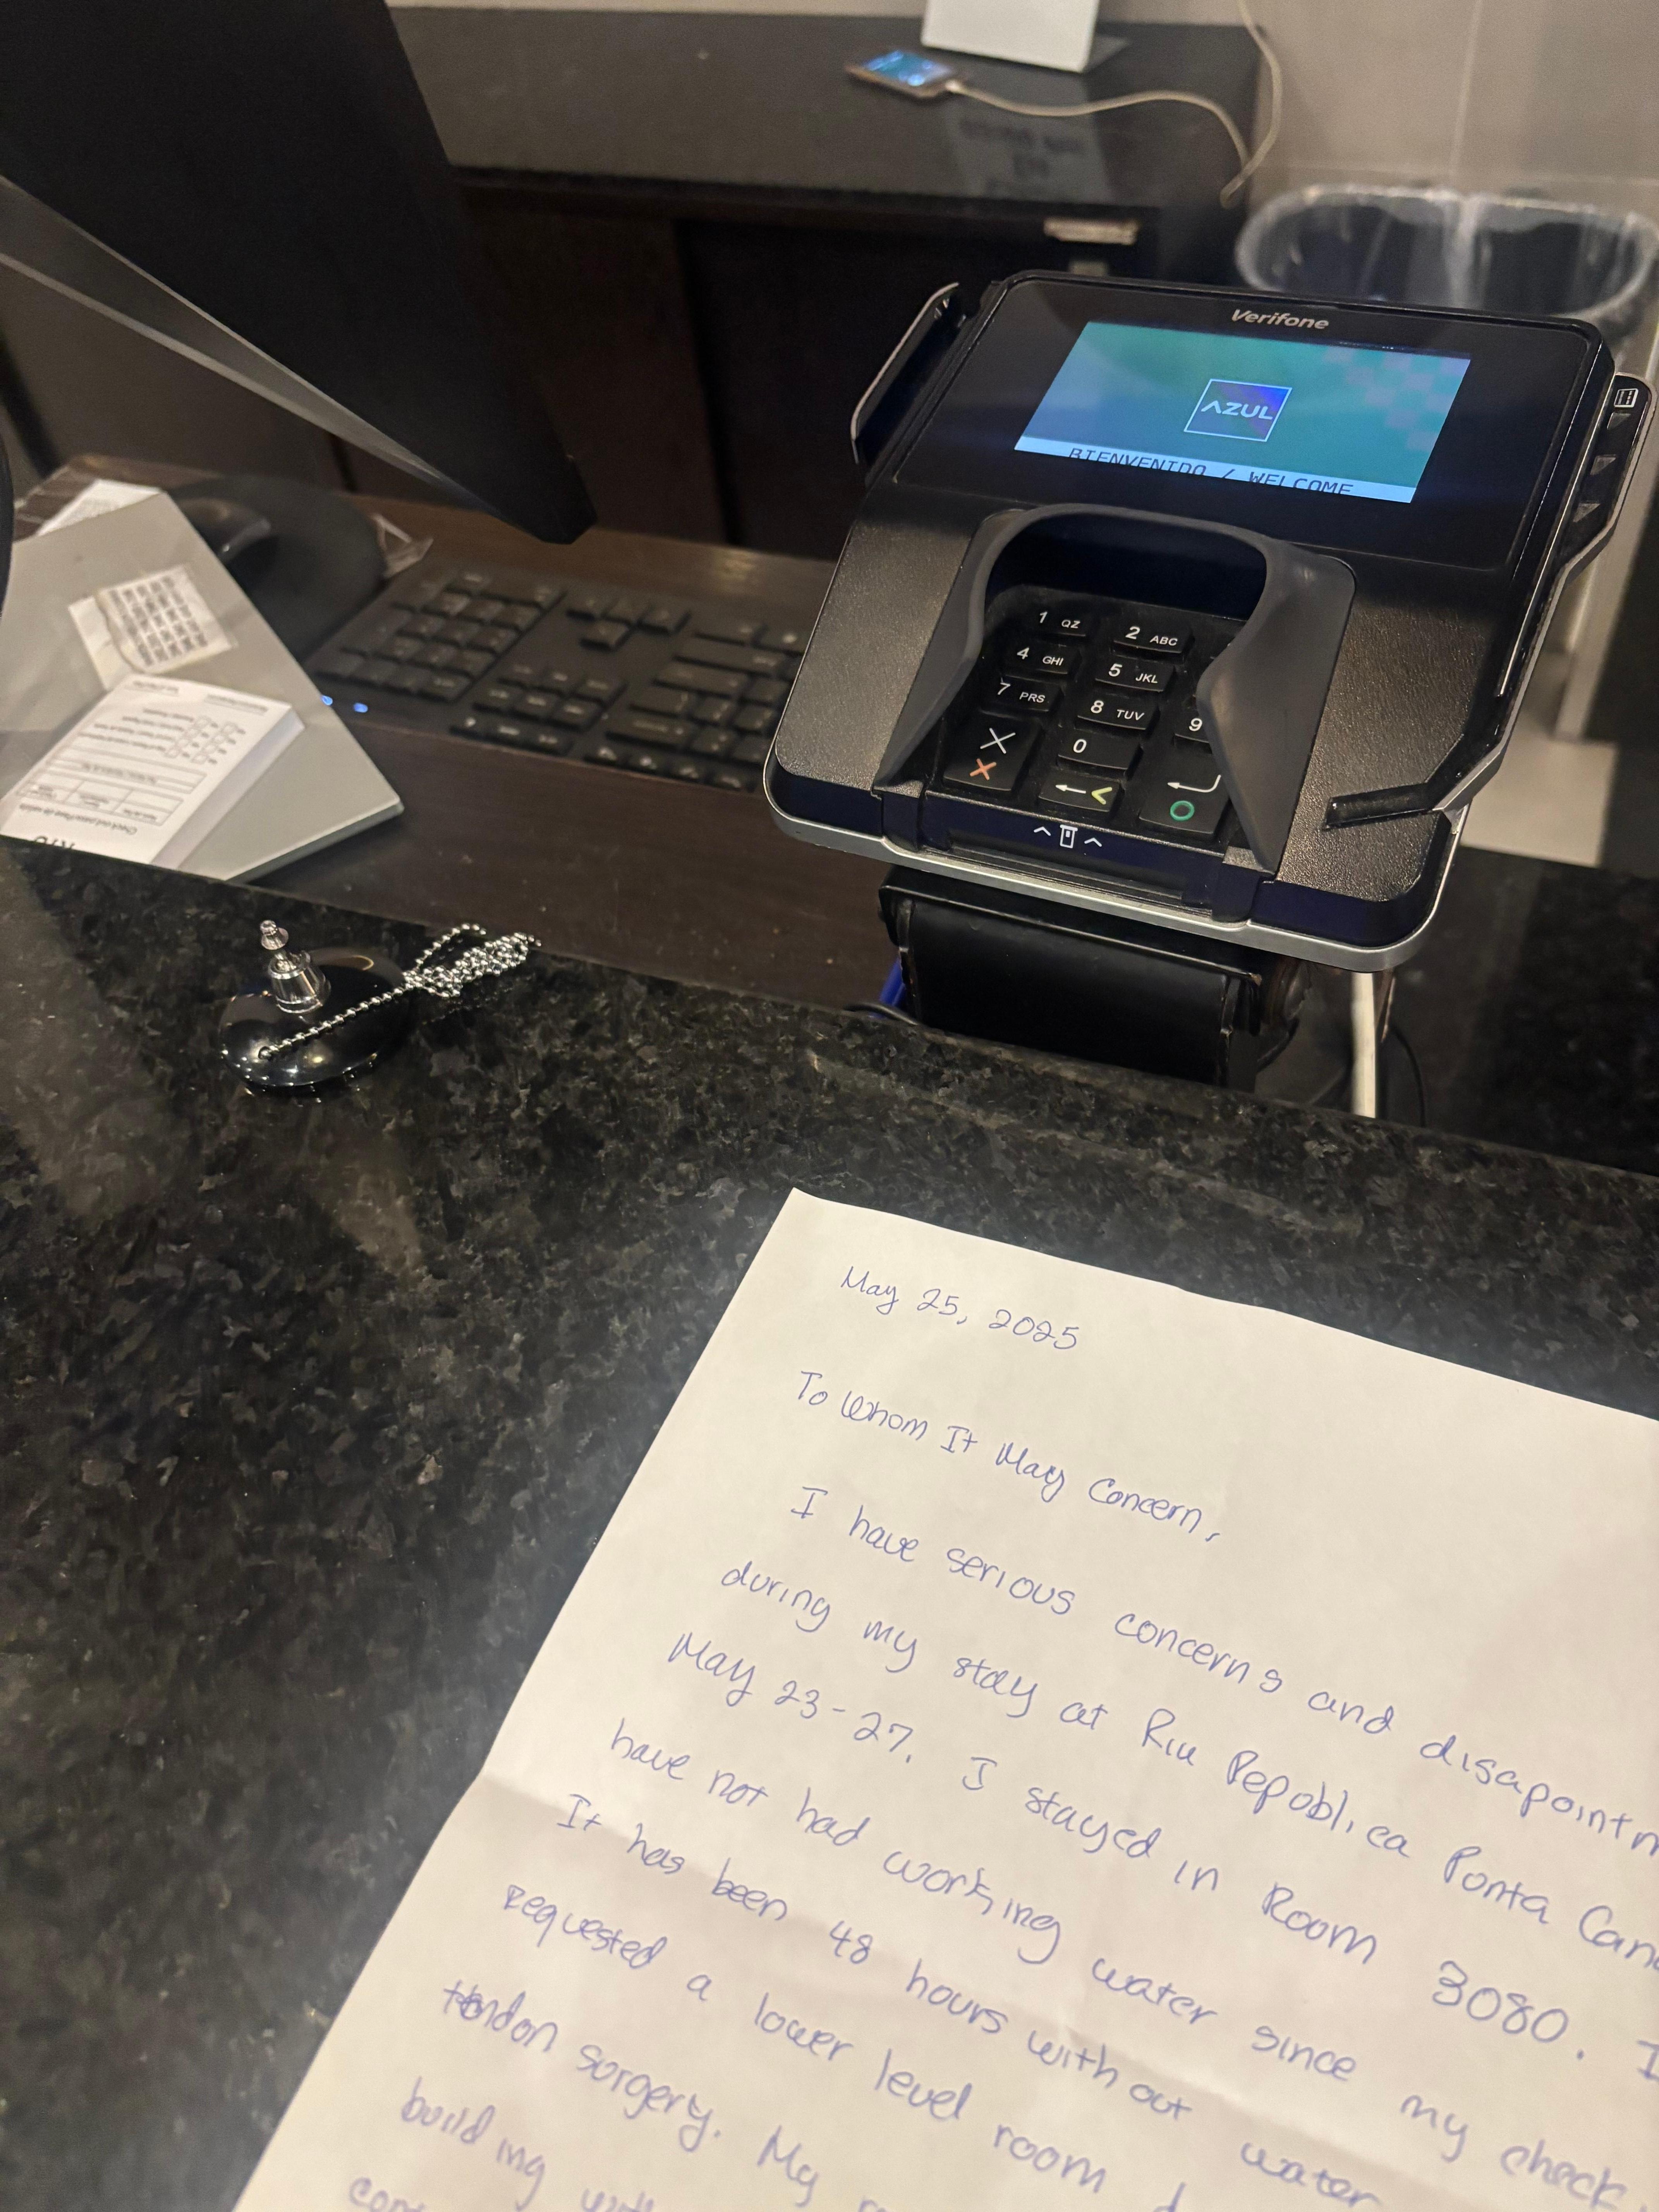 Verifone
AZUL
BIENVENIDO / WELCOME
1 QZ
2 ABC
4 GHI
5 JKL
7 PRS
8 TUV
9
0
May 25, 2025
To Whom It May Concern,
I have serious concerns and disapointm
during my stay at Riu Republica Punta Cana
May 23-27. I stayed in Room 3080. I
have not had working water since my check
It has been 48 hours without water
requested a lower level room
tendon surgery. My
building with